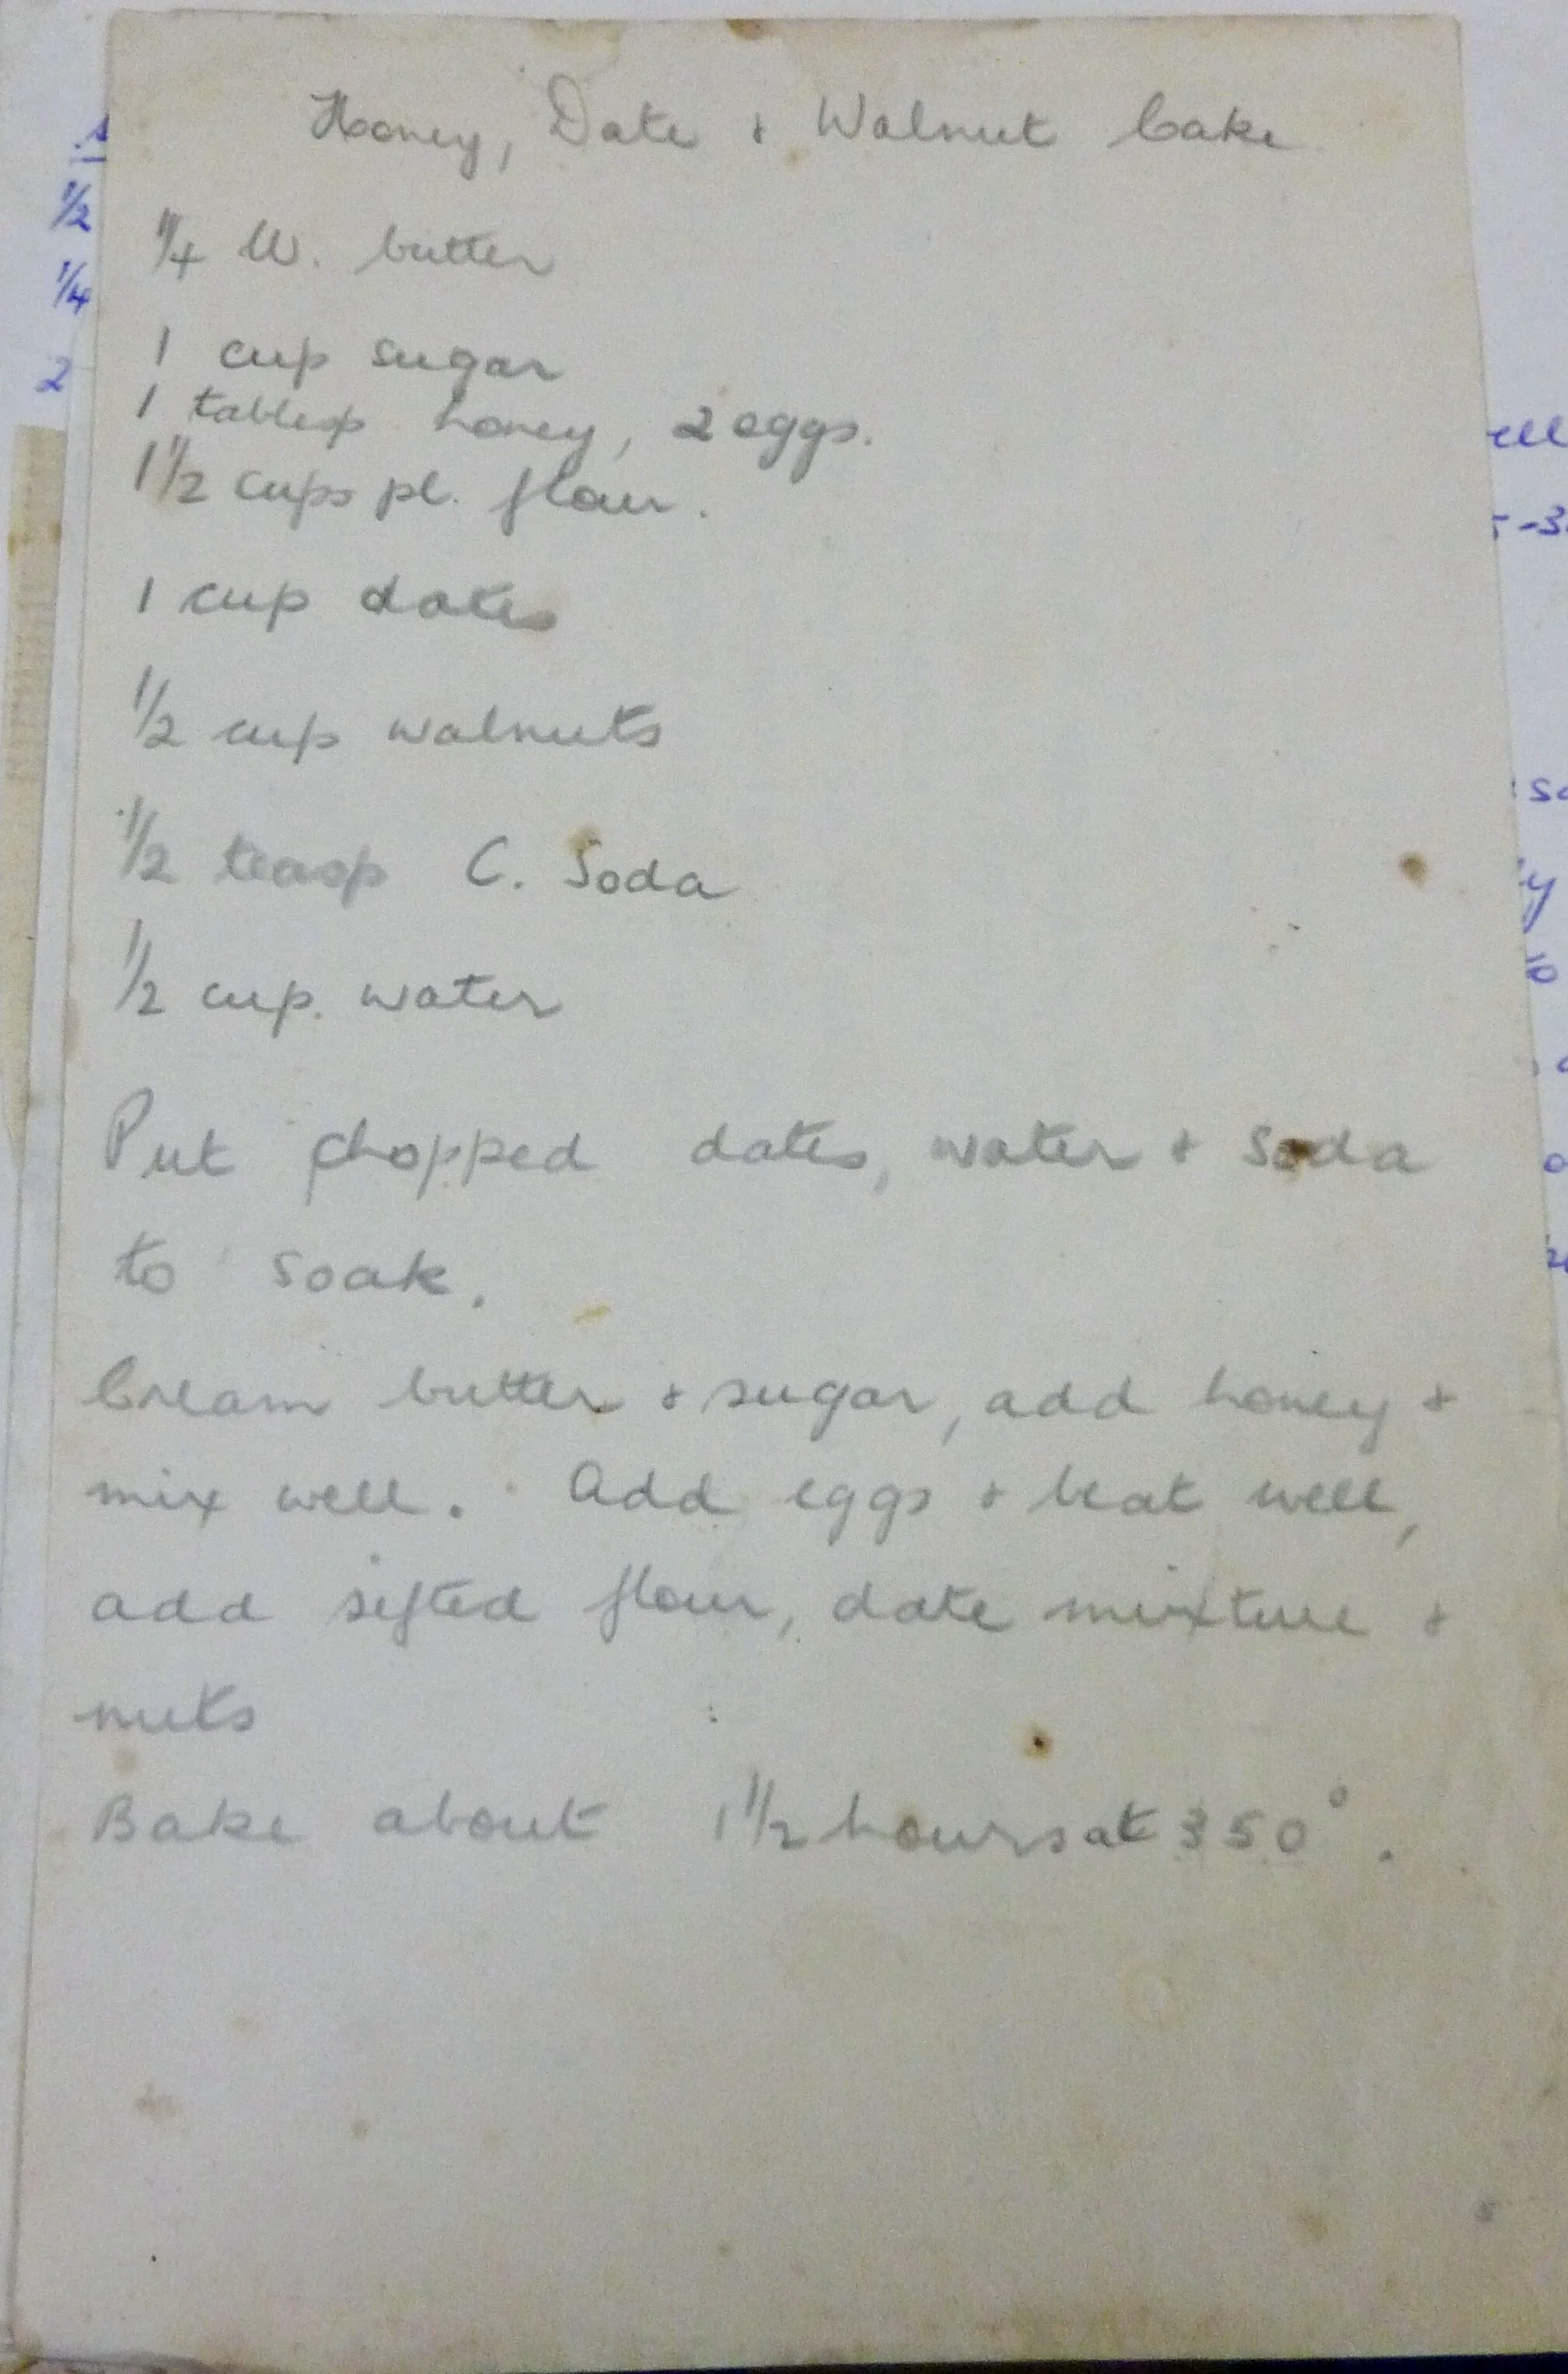 Honey, Date & Walnut Cake
1/4 lb. butter
1 cup sugar
1 tablesp honey, 2 eggs.
1 1/2 cups pl. flour.
1 cup dates
1/2 cup walnuts
1/2 teasp C. Soda
1/2 cup. water
Put chopped dates, water & Soda
to soak.
Cream butter & sugar, add honey &
mix well. Add eggs & beat well,
add sifted flour, date mixture &
nuts
Bake about 1 1/2 hours at 350°.
1/2
1/4
2